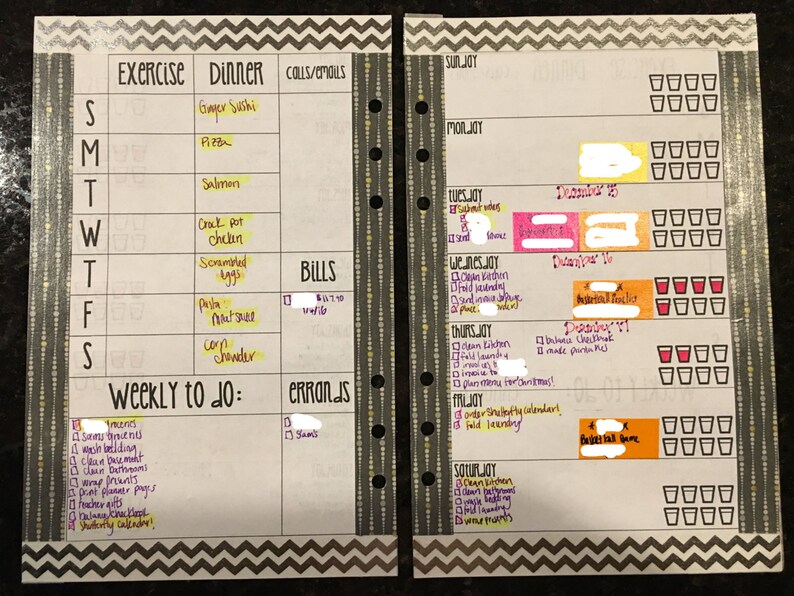 Exercise Dinner calls/emails
S Ginger Sushi
M Pizza
T Salmon
W Crock pot
chicken
T Scrambled
eggs
BILLS
F Pasta
meat sauce
1/4/16
S Corn
chowder
Weekly to do: ERRANDS
groceries
Sams groceries
Sams
wash bedding
clean basement
clean bathrooms
wrap presents
print planner pages
teacher gifts
balance checkbook
Shutterfly calendar!
SUNDAY
MONDAY
TUESDAY
December 15
Submit orders
send invoice
WEDNESDAY
December 16
clean kitchen
fold laundry
send invoice
place orders!
Basketball Practice
THURSDAY
December 17
clean kitchen
fold laundry
invoices to
invoice to
plan menu for Christmas!
balance checkbook
make pancakes
FRIDAY
order Shutterfly calendar!
fold laundry!
Basketball Game
SATURDAY
Clean Kitchen
clean bathrooms
wash bedding
fold laundry
wrap presents